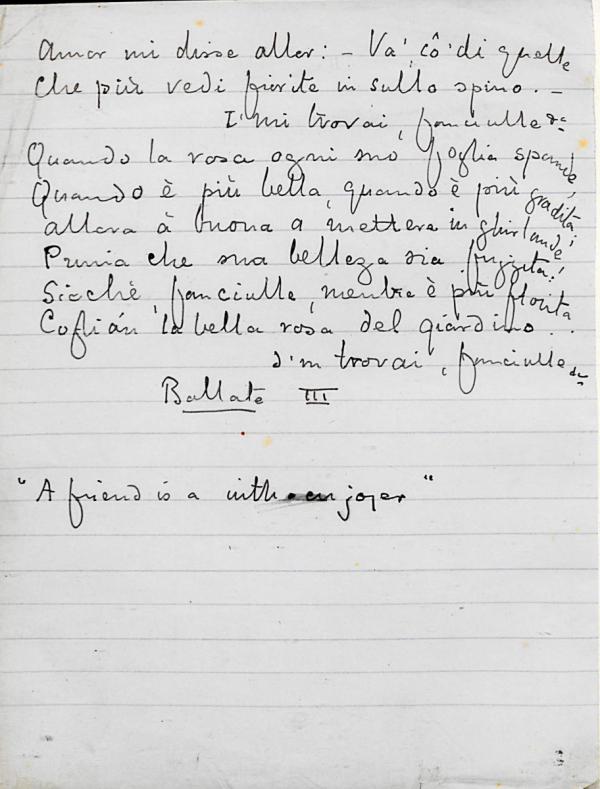 Amor mi disse allor: – Va', cô' di quelle
Che più vedi fiorite in sullo spino. –
I' mi trovai, fanciulle &c
Quando la rosa ogni suo foglia spande,
Quando è più bella, quando è più gradita;
allora à buona a mettere in ghirlande
Prima che sua belleza sia fuggita!
Sicchè, fanciulle, mentre è più fiorita
Cogliàn la bella rosa del giardino.
I' m trovai, fanciulle &c
Ballate III
"A friend is a with-en joyer"